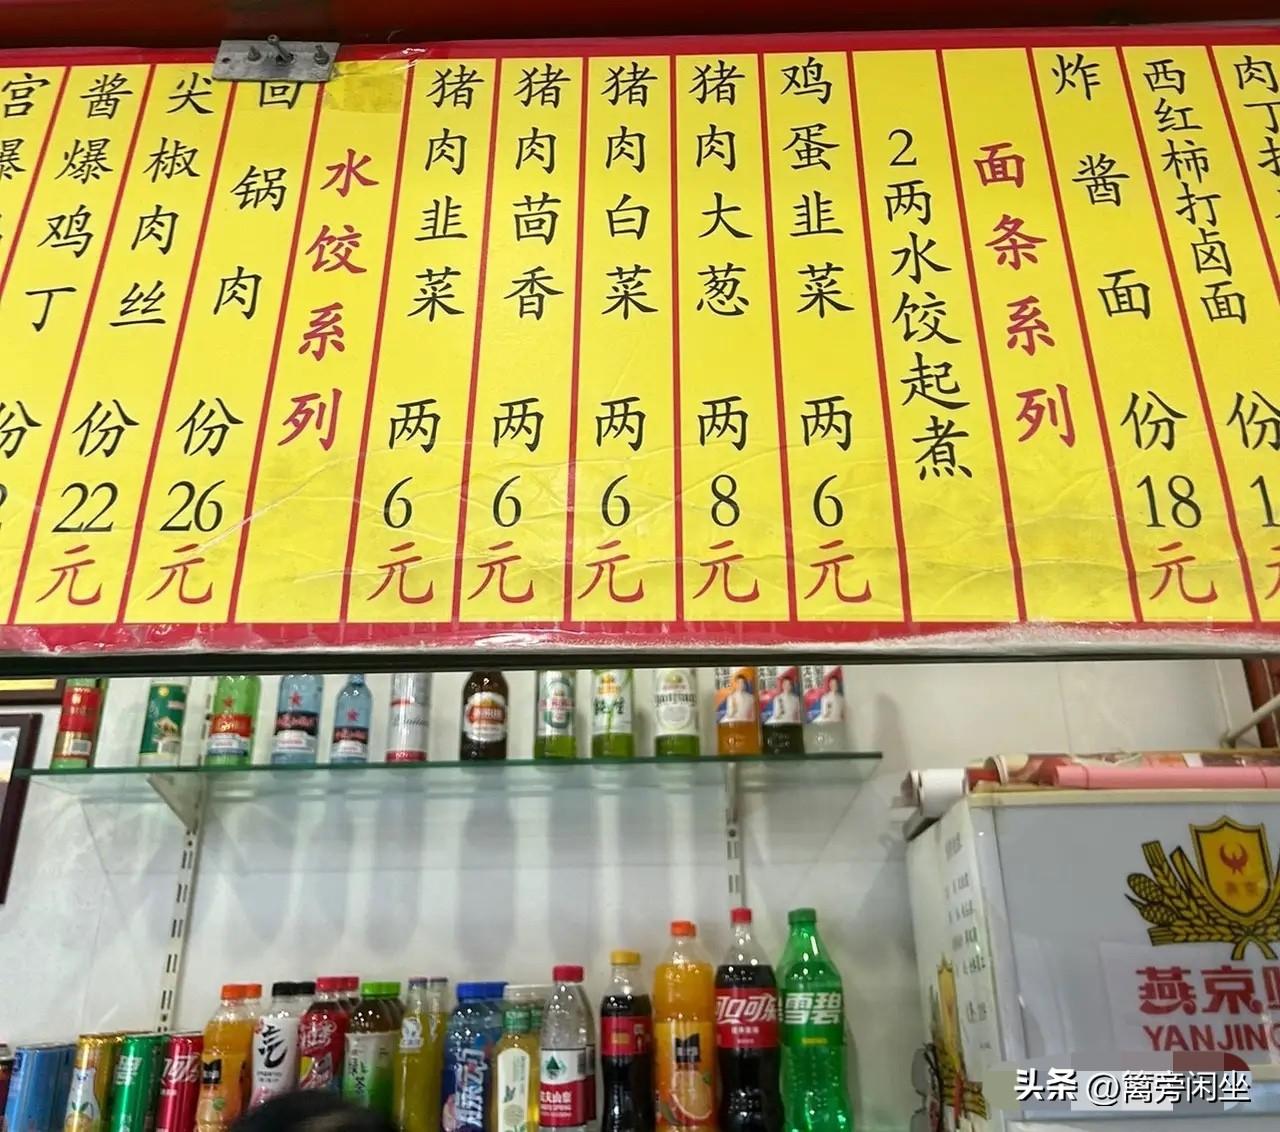 宫爆鸡丁 份
酱爆鸡丁 份22元
尖椒肉丝 份26元
回锅肉
水饺系列
猪肉韭菜 两6元
猪肉茴香 两6元
猪肉白菜 两6元
猪肉大葱 两8元
鸡蛋韭菜 两6元
2两水饺起煮
面条系列
炸酱面 份18元
西红柿打卤面 份1
肉丁打
可口可乐
雪碧
燕京
YANJING
头条 @篱旁闲坐